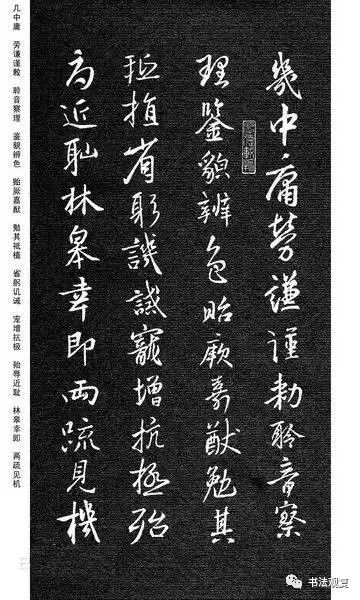 幾中庸勞謙謹勅聆音察
理鑒貌辨色貽厥嘉猷勉其
祗植省躬譏誡寵增抗極殆
辱近耻林皋幸即兩疏見機
几中庸 劳谦谨敕 聆音察理 鉴貌辨色 贻厥嘉猷 勉其祗植 省躬讥诫 宠增抗极 殆辱近耻 林皋幸即 两疏见机
书法观